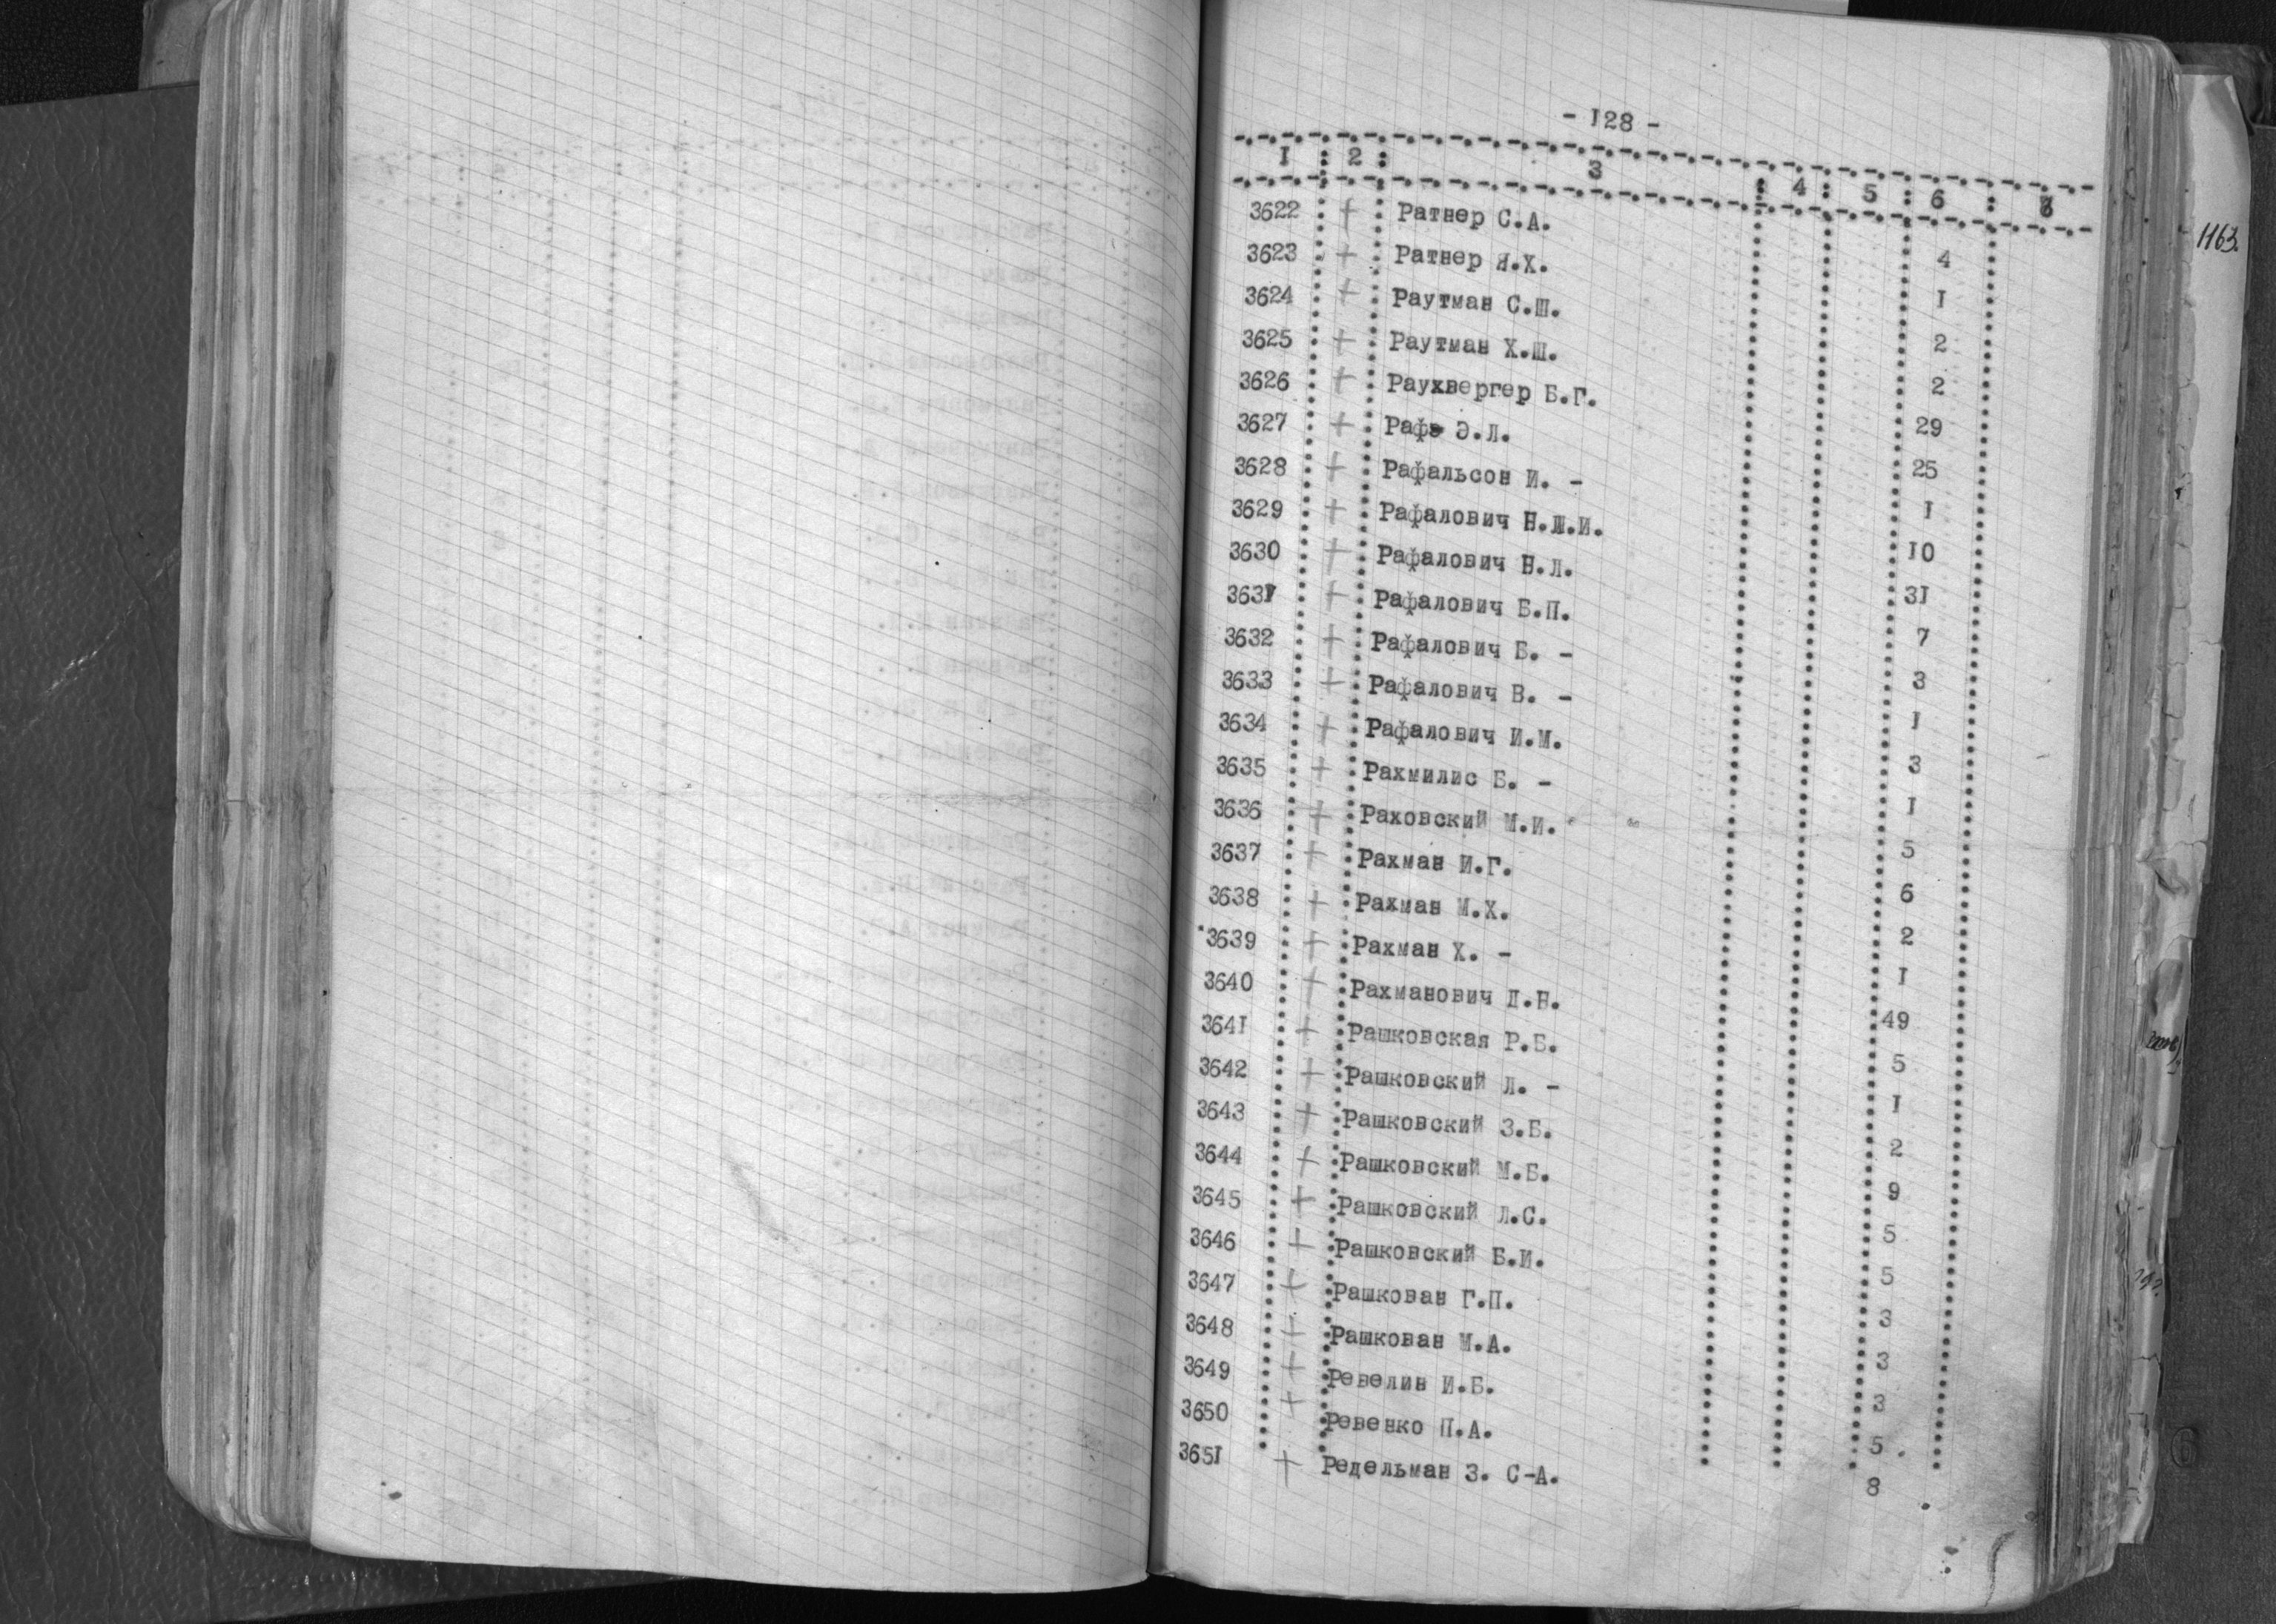 - I28 -
I : 2 : 3 : 4 : 5 : 6 : 8
1163.
3622 + Ратнер С.А. 4
3623 + Ратнер Я.Х. I
3624 + Раутман С.Ш. 2
3625 + Раутман Х.Ш. 2
3626 + Раухвергер Б.Г. 29
3627 + Раф Э.Л. 25
3628 + Рафальсон И. - I
3629 + Рафалович Н.Ш.И. I0
3630 + Рафалович Н.Л. 3I
363I + Рафалович Б.П. 7
3632 + Рафалович Б. - 3
3633 + Рафалович В. - I
3634 + Рафалович И.М. 3
3635 + Рахмилис Б. - I
3636 + Раховский М.И. 5
3637 + Рахман И.Г. 6
3638 + Рахман М.Х. 2
3639 + Рахман Х. - I
3640 + Рахманович Д.Н. 49
364I + Рашковская Р.Б. 5
3642 + Рашковский Л. - I
3643 + Рашковский З.Б. 2
3644 + Рашковский М.Б. 9
3645 + Рашковский Л.С. 5
3646 + Рашковский Б.И. 5
3647 + Рашкован Г.П. 3
3648 + Рашкован М.А. 3
3649 + Ревелин И.Б. 3
3650 + Ревенко П.А. 5
365I + Редельман З. С-А. 8